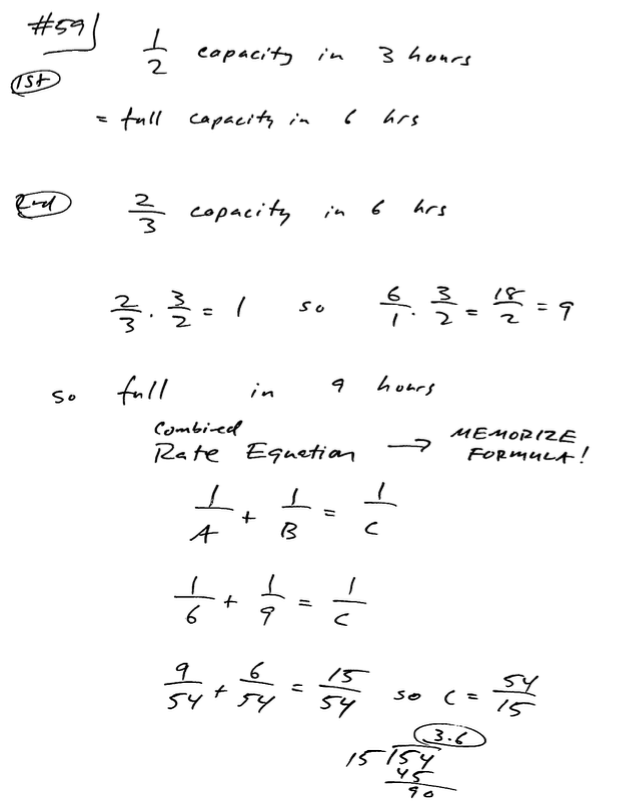 #59
1/2 capacity in 3 hours
1st
= full capacity in 6 hrs
2nd 2/3 capacity in 6 hrs
2/3 · 3/2 = 1 so 6/1 · 3/2 = 18/2 = 9
so full in 9 hours
Combined
Rate Equation → MEMORIZE FORMULA!
1/A + 1/B = 1/C
1/6 + 1/9 = 1/C
9/54 + 6/54 = 15/54 so C = 54/15
3.6
15 154
45
90